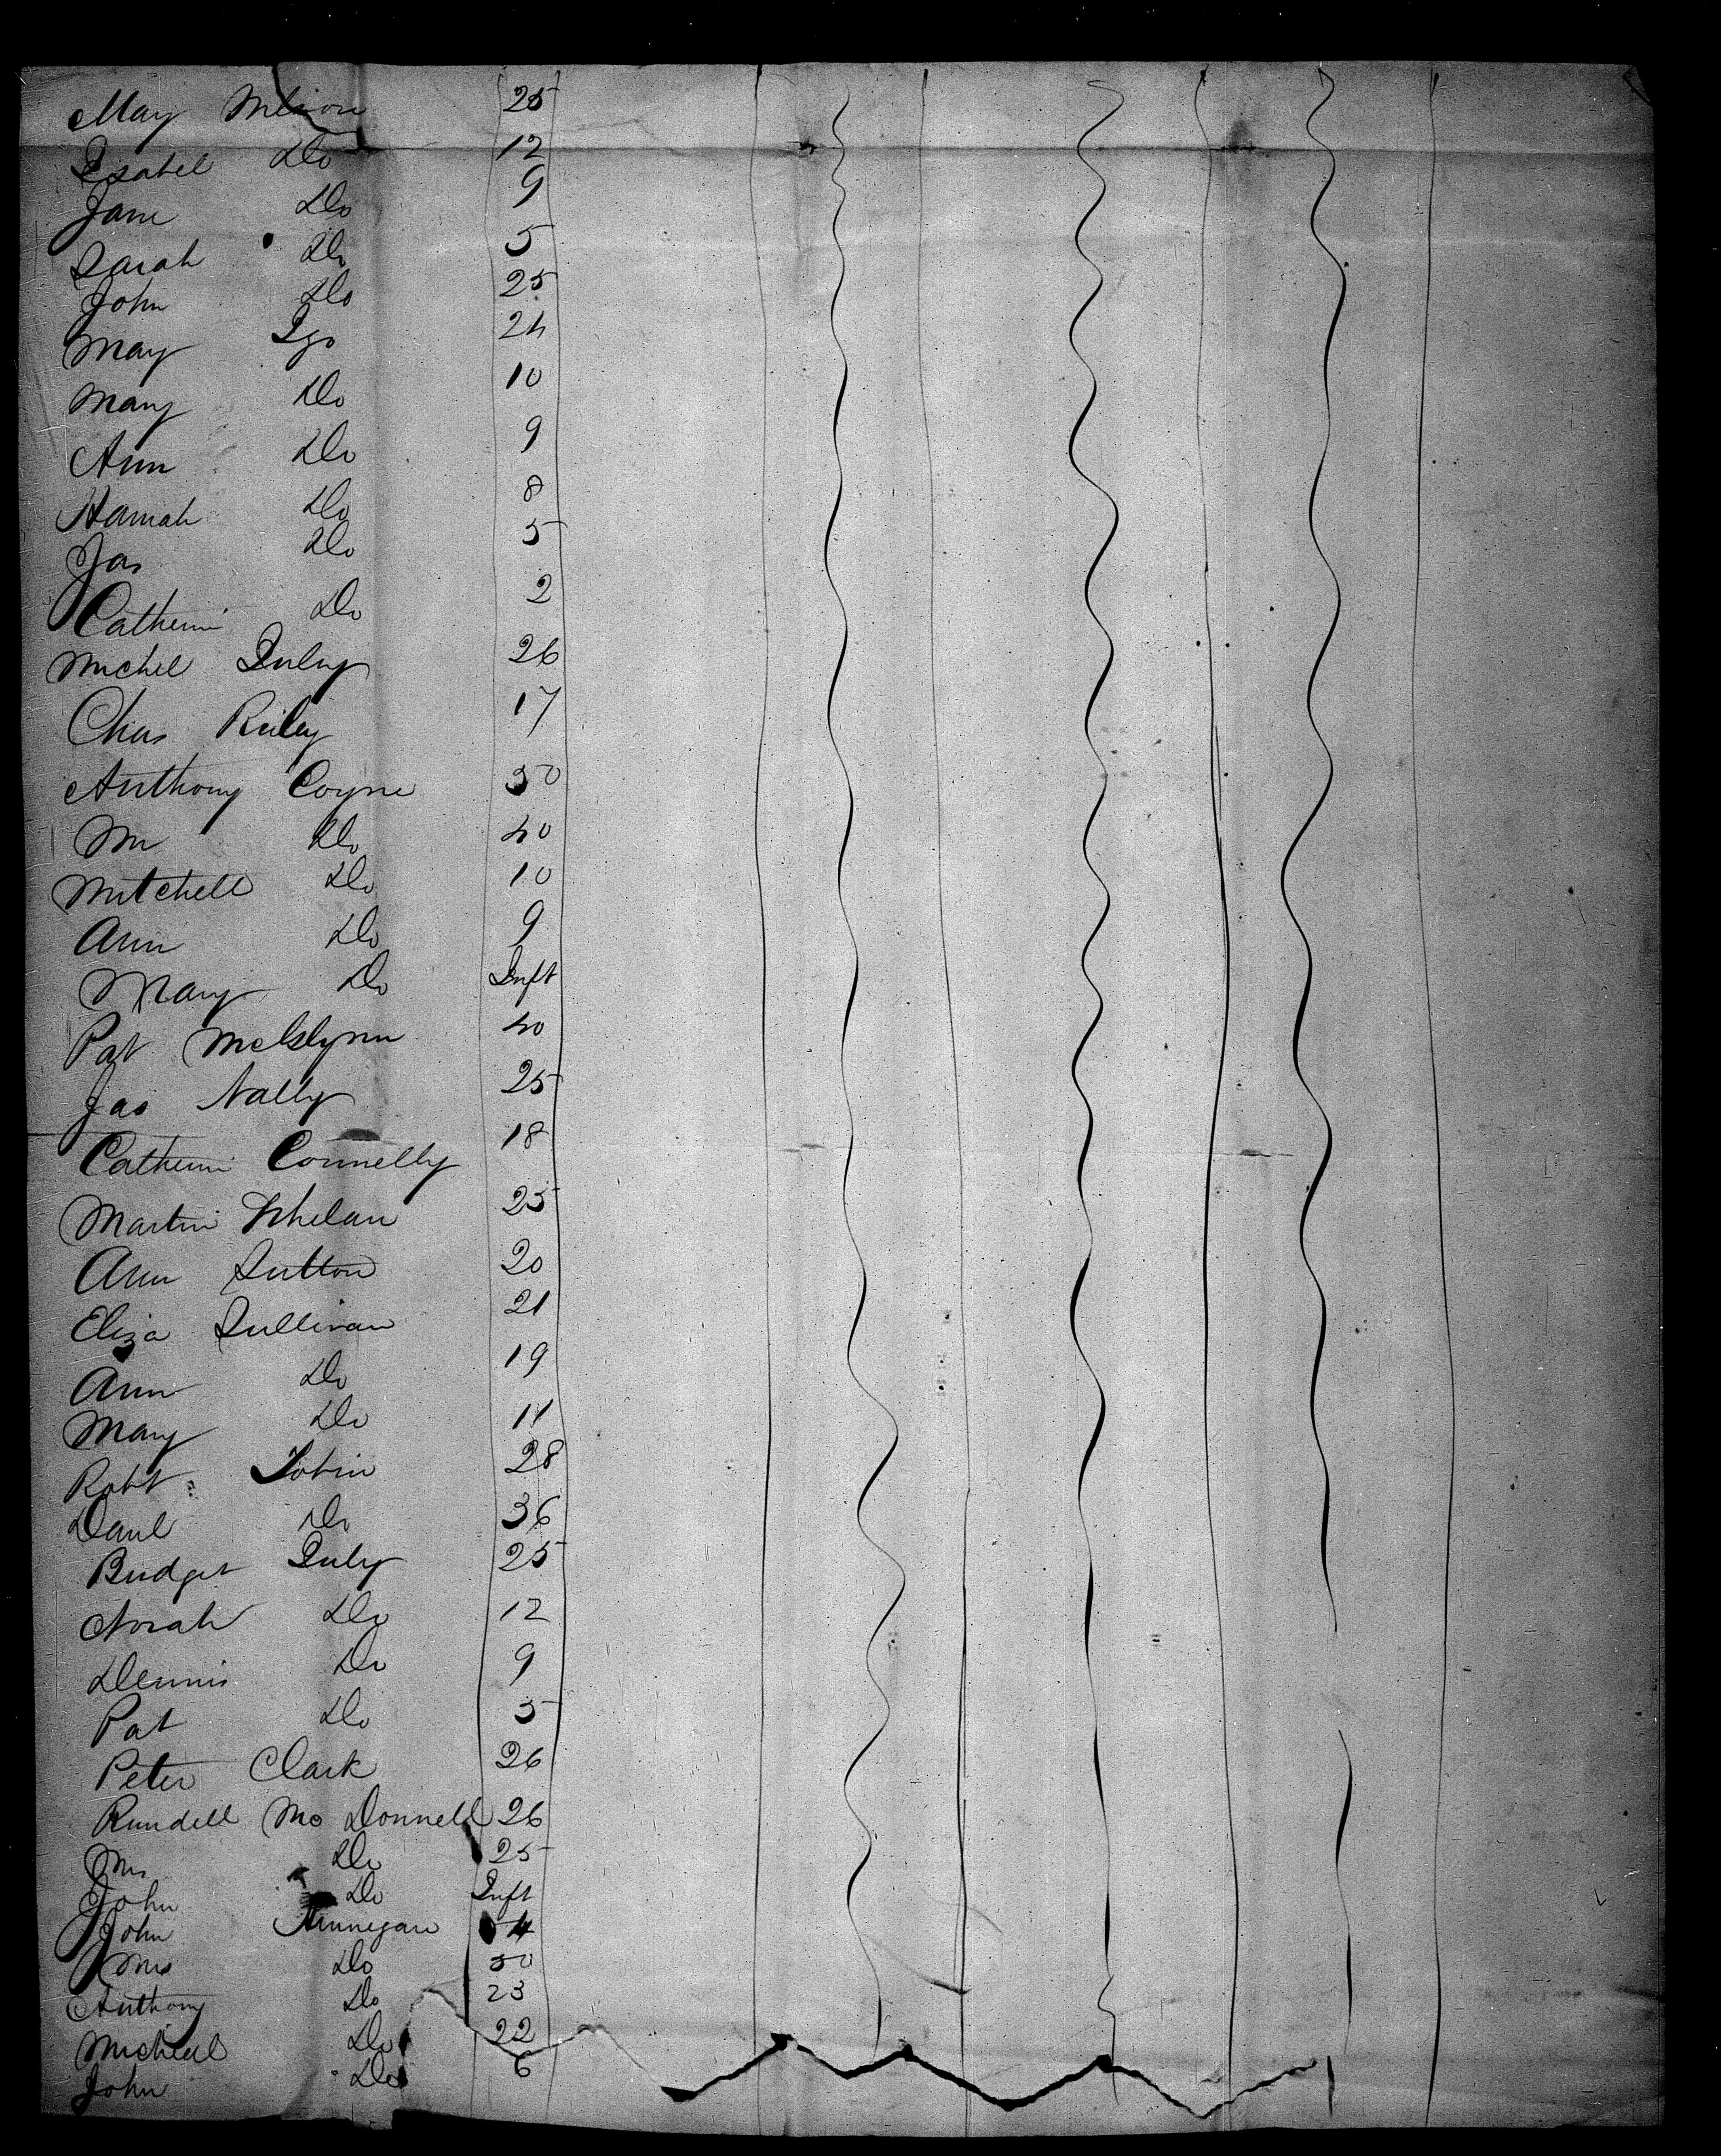 May 25
Isabel Do 12
Jane Do 9
Sarah Do 5
John Do 25
May Igo 24
Mary Do 10
Ann Do 9
Hannah Do 8
Jas Do 5
Catherin Do 2
Michel 26
Chas Riley 17
Anthony Coyne 50
Mr Do 40
Mitchell Do 10
Ann Do 9
Mary Do Inft
Pat McGlynn 40
Jas Nally 25
Catherin Connelly 18
Martin Whelan 25
Ann Sutton 20
Eliza Sullivan 21
Ann Do 19
Mary Do 11
Robt Tobin 28
Danl Do 36
Bridget 25
Norah Do 12
Dennis Do 9
Pat Do 5
Peter Clark 26
Rundell Mc Donnell 26
Mrs Do 25
John Do Inft
John Finnegan 54
Mrs Do 50
Anthony Do 23
Micheal Do 22
John Do 6